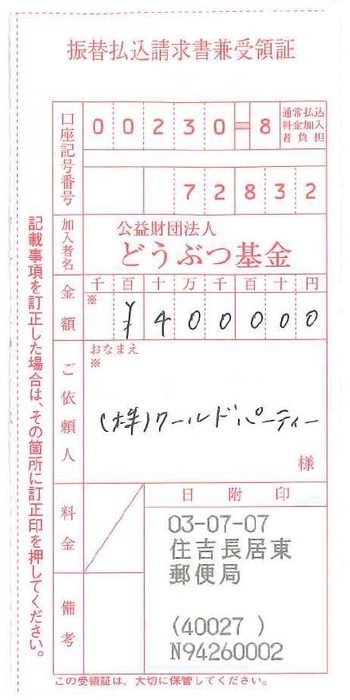 振替払込請求書兼受領証
口座記号番号
00230=8
通常払込
料金加入
者負担
72832
加入者名
公益財団法人
どうぶつ基金
金額
千百十万千百十円
※
¥4000000
ご依頼人
おなまえ
※
(株)ワールドパーティー
様
料金
備考
日附印
03-07-07
住吉長居東
郵便局
(40027 )
N94260002
記載事項を訂正した場合は、その箇所に訂正印を押してください。
この受領証は、大切に保管してください。